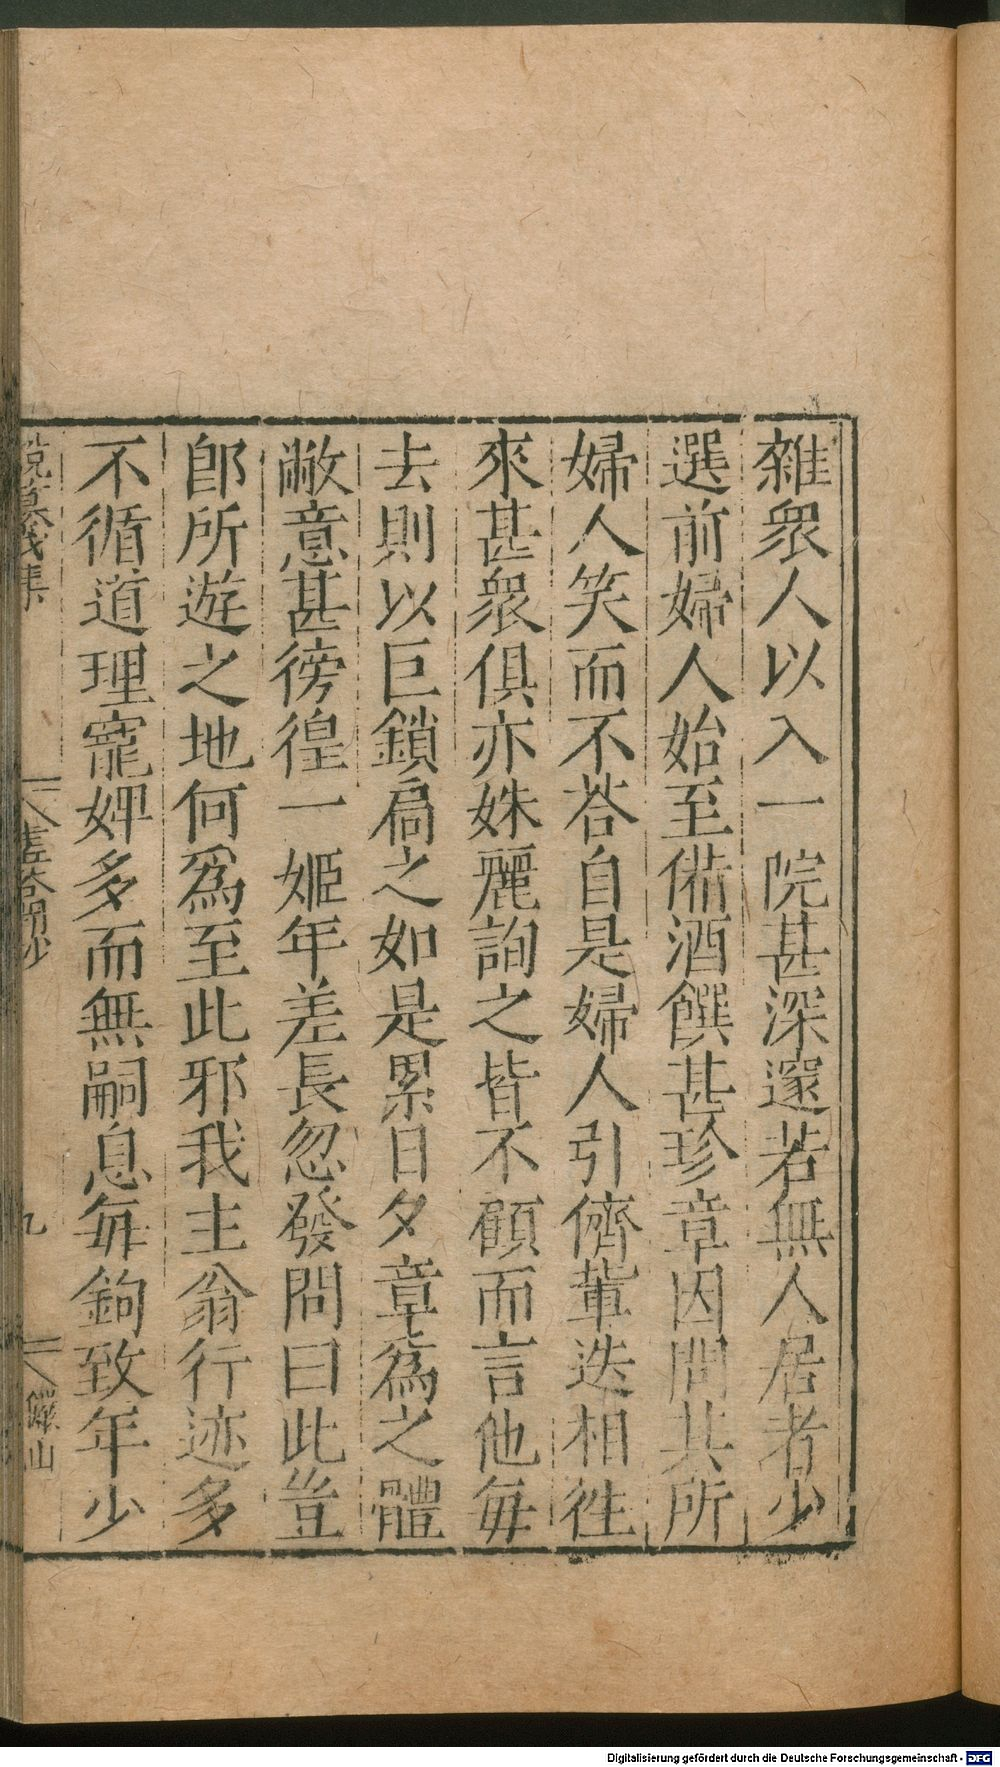 雜衆人以入一院甚深邃若無人居者少
選前婦人始至俻酒饌甚珍章因問其所
婦人笑而不荅自是婦人引儕軰迭相徃
來甚衆俱亦姝麗詢之皆不顧而言他毎
去則以巨鎖扄之如是累日夕章爲之體
敝意甚徬徨一姬年差長忽發問曰此豈
郎所遊之地何爲至此邪我主翁行迹多
不循道理寵婢多而無嗣息毎鉤致年少
九
Digitalisierung gefördert durch die Deutsche Forschungsgemeinschaft - DFG